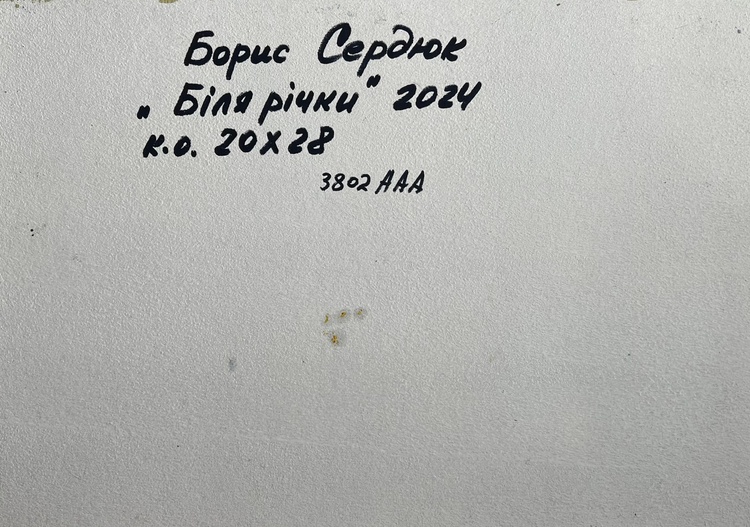 Борис Сердюк
„Біля річки" 2024
к.о. 20х28
3802 ААА